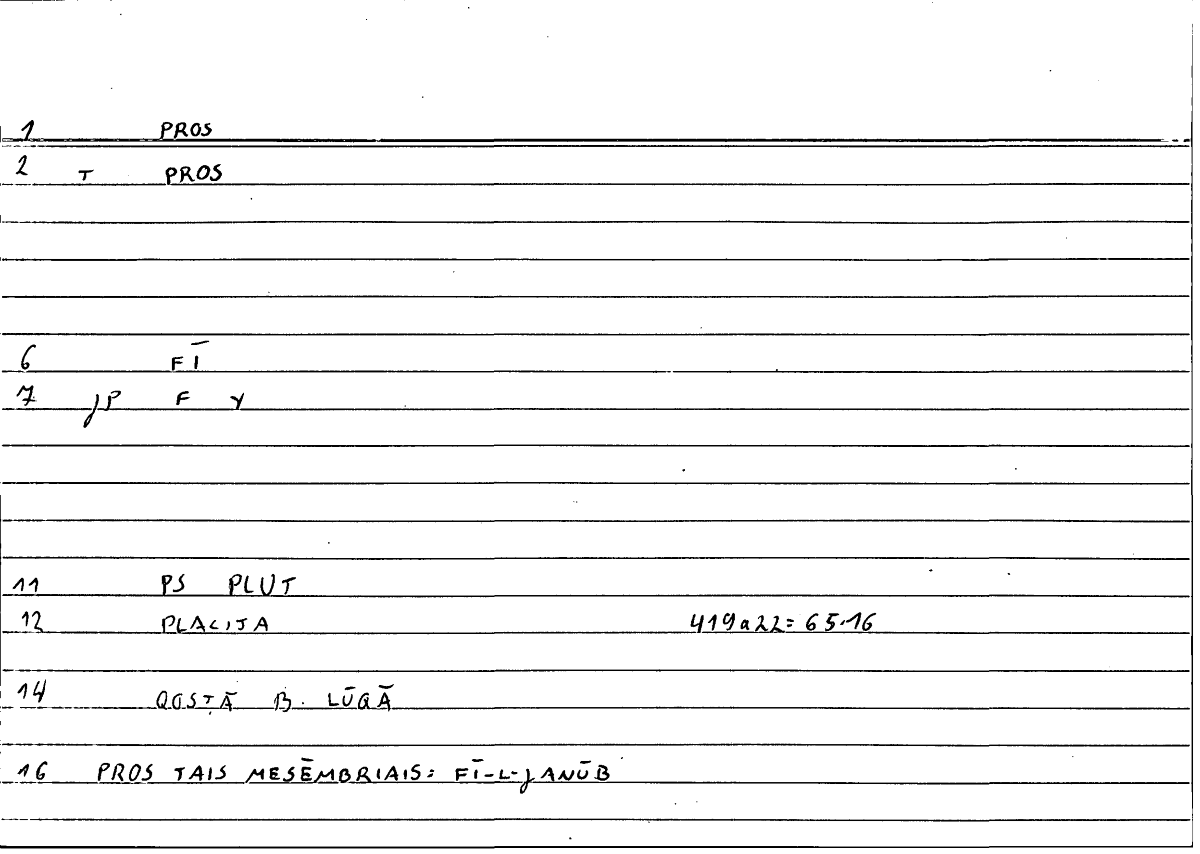 1 PROS
2 T PROS
6 FĪ
7 JP F Y
11 PS PLUT
12 PLACITA 419a22=65.16
14 QOSṬĀ B. LŪQĀ
16 PROS TAIS MESĒMBRIAIS: FĪ-L-JANŪB